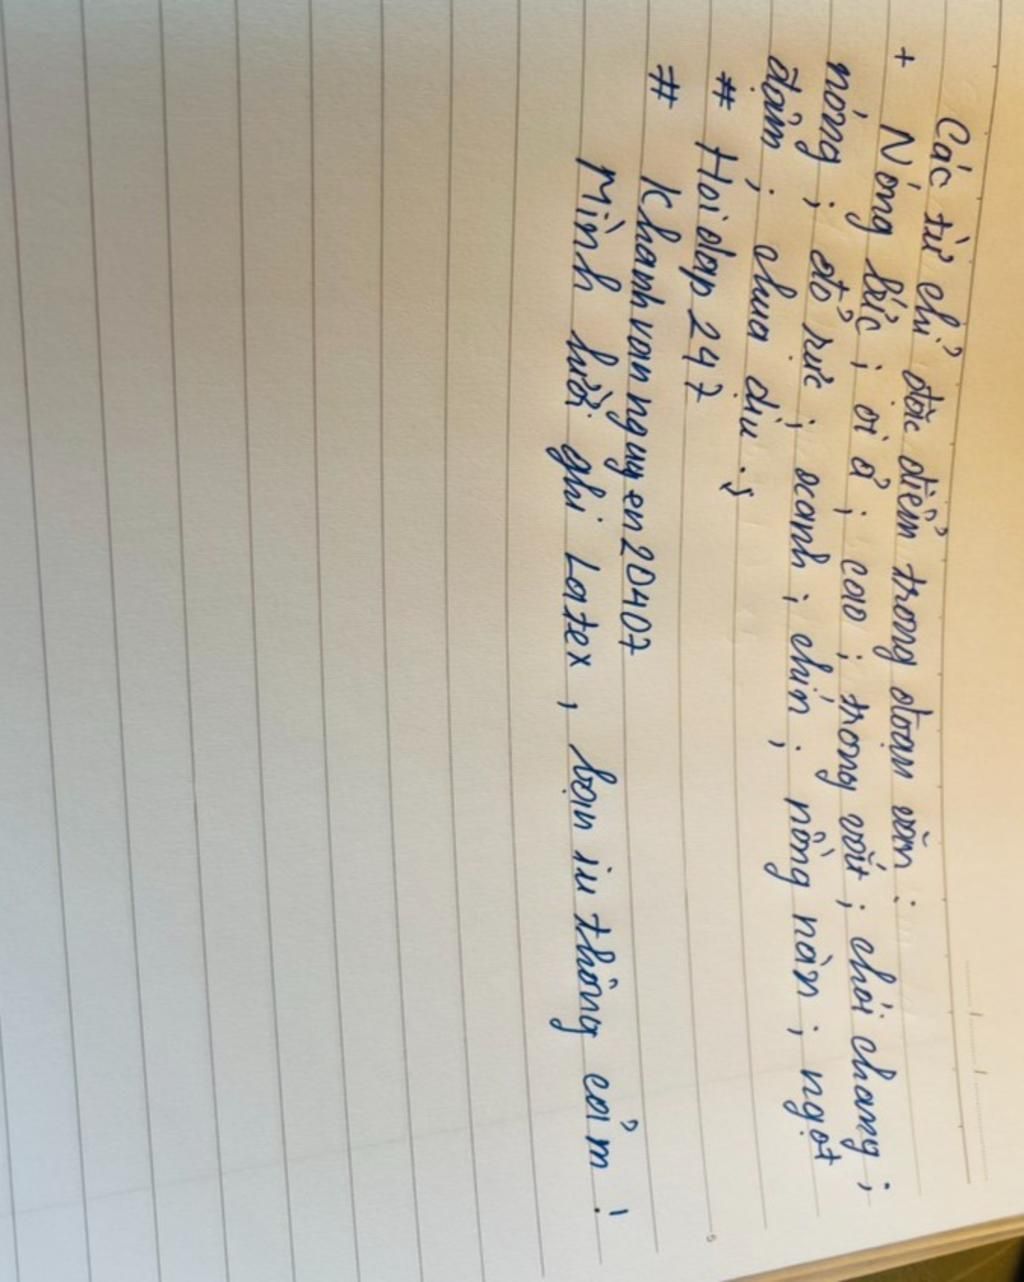 Các từ chỉ đặc điểm trong đoạn văn :
+ Nóng bức ; oi ả ; cao ; trong vắt ; chói chang ;
nóng ; đỏ rực ; xanh ; chín ; nồng nàn ; ngọt
đậm ; chua dịu .
# Hoidap247
# khanhvannguyen20407
Mình lười ghi Latex , bạn iu thông cảm !